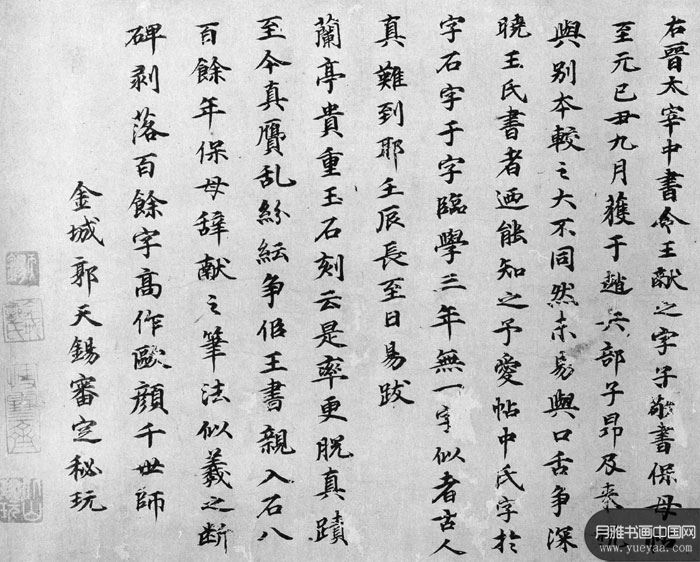 右晉太宰中書令王献之字子敬書保母帖
至元己丑九月獲于趙兵部子昂及来
與别本較之大不同然未易與口舌争深
曉王氏書者迺能知之予愛帖中氏字於
字石字于字臨學三年無一字似者古人
真難到耶壬辰長至日易跋
蘭亭貴重玉石刻云是率更脱真蹟
至今真贋乱紛紜争侣王書親入石八
百餘年保母辭献之筆法似羲之断
碑剥落百餘字高作歐顔千世師
金城郭天錫審定秘玩
月雅书画中国网
www.yueyaa.com